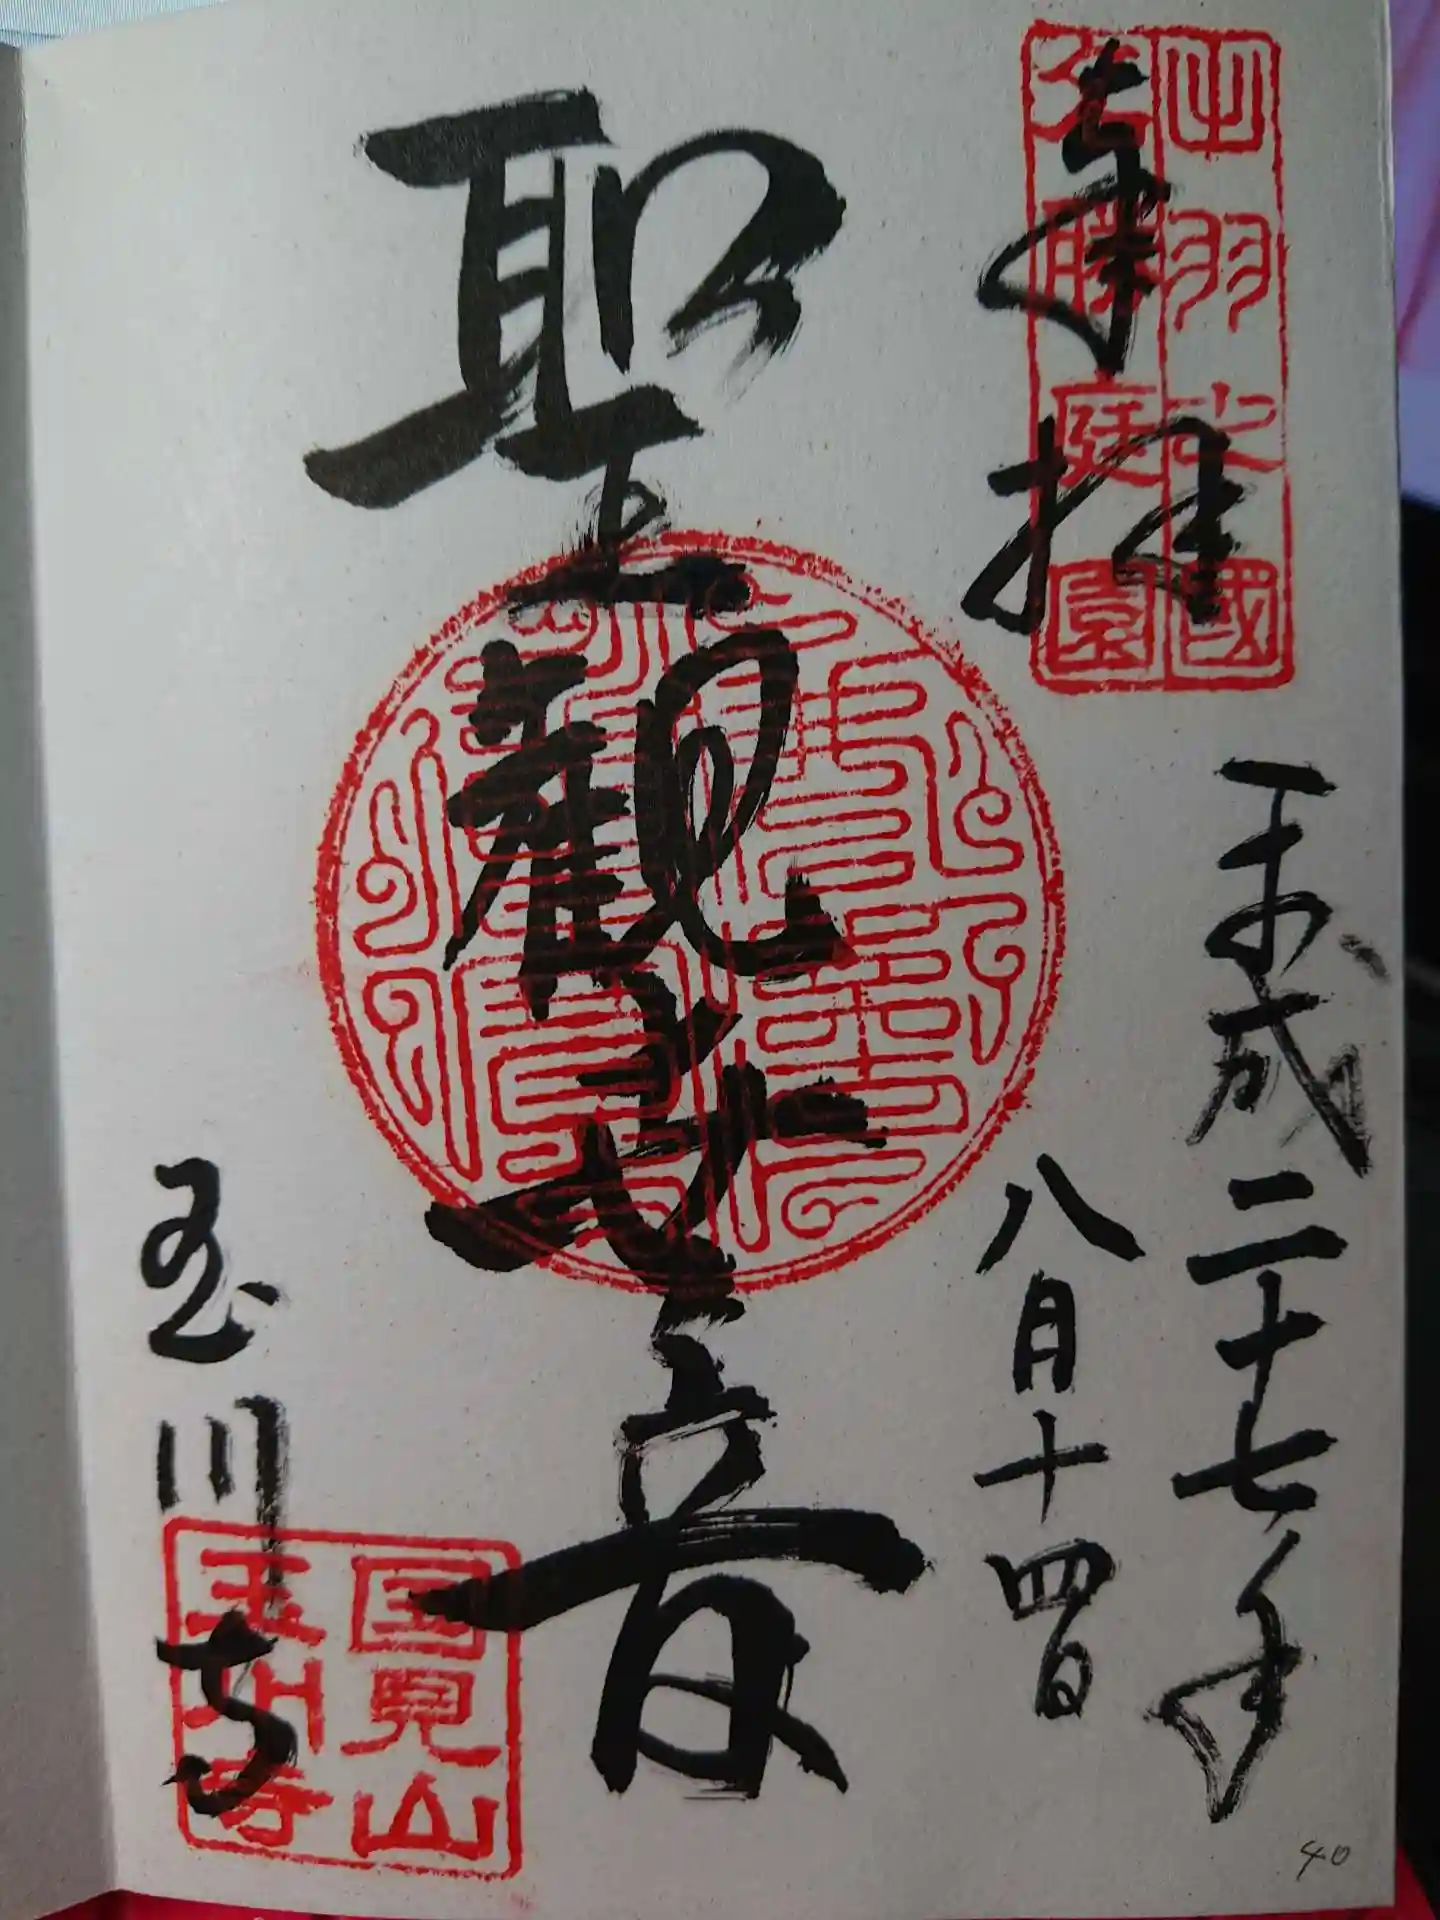 出羽之國
名勝庭園
奉拝
平成二十七年
八月十四日
聖観世音
玉川寺
国見山
玉川寺
40